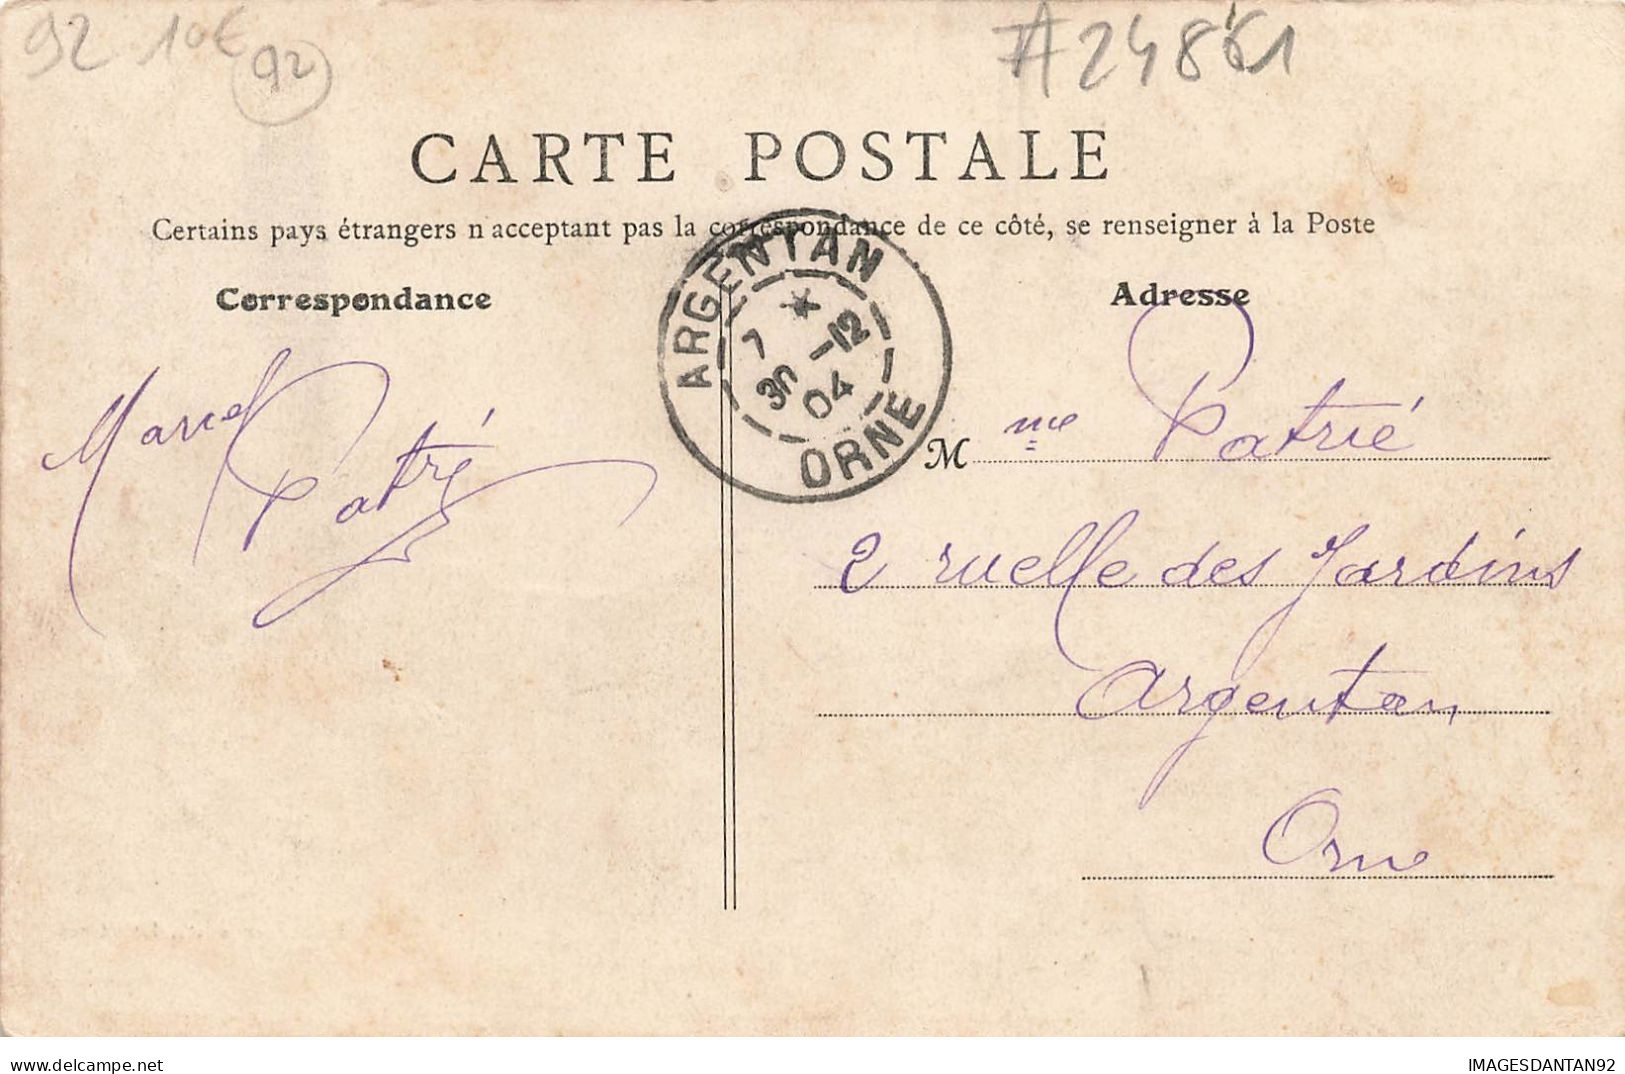 92 10€ 92
#24861
CARTE POSTALE
Certains pays étrangers n'acceptant pas la correspondance de ce côté, se renseigner à la Poste
Correspondance
Adresse
ARGENTAN
7 *
30 -12
04
ORNE
Marcel
Patrié
Mme Patrié
2 ruelle des Jardins
Argentan
Orne
https://www.delcampe.net
IMAGESDANTAN92